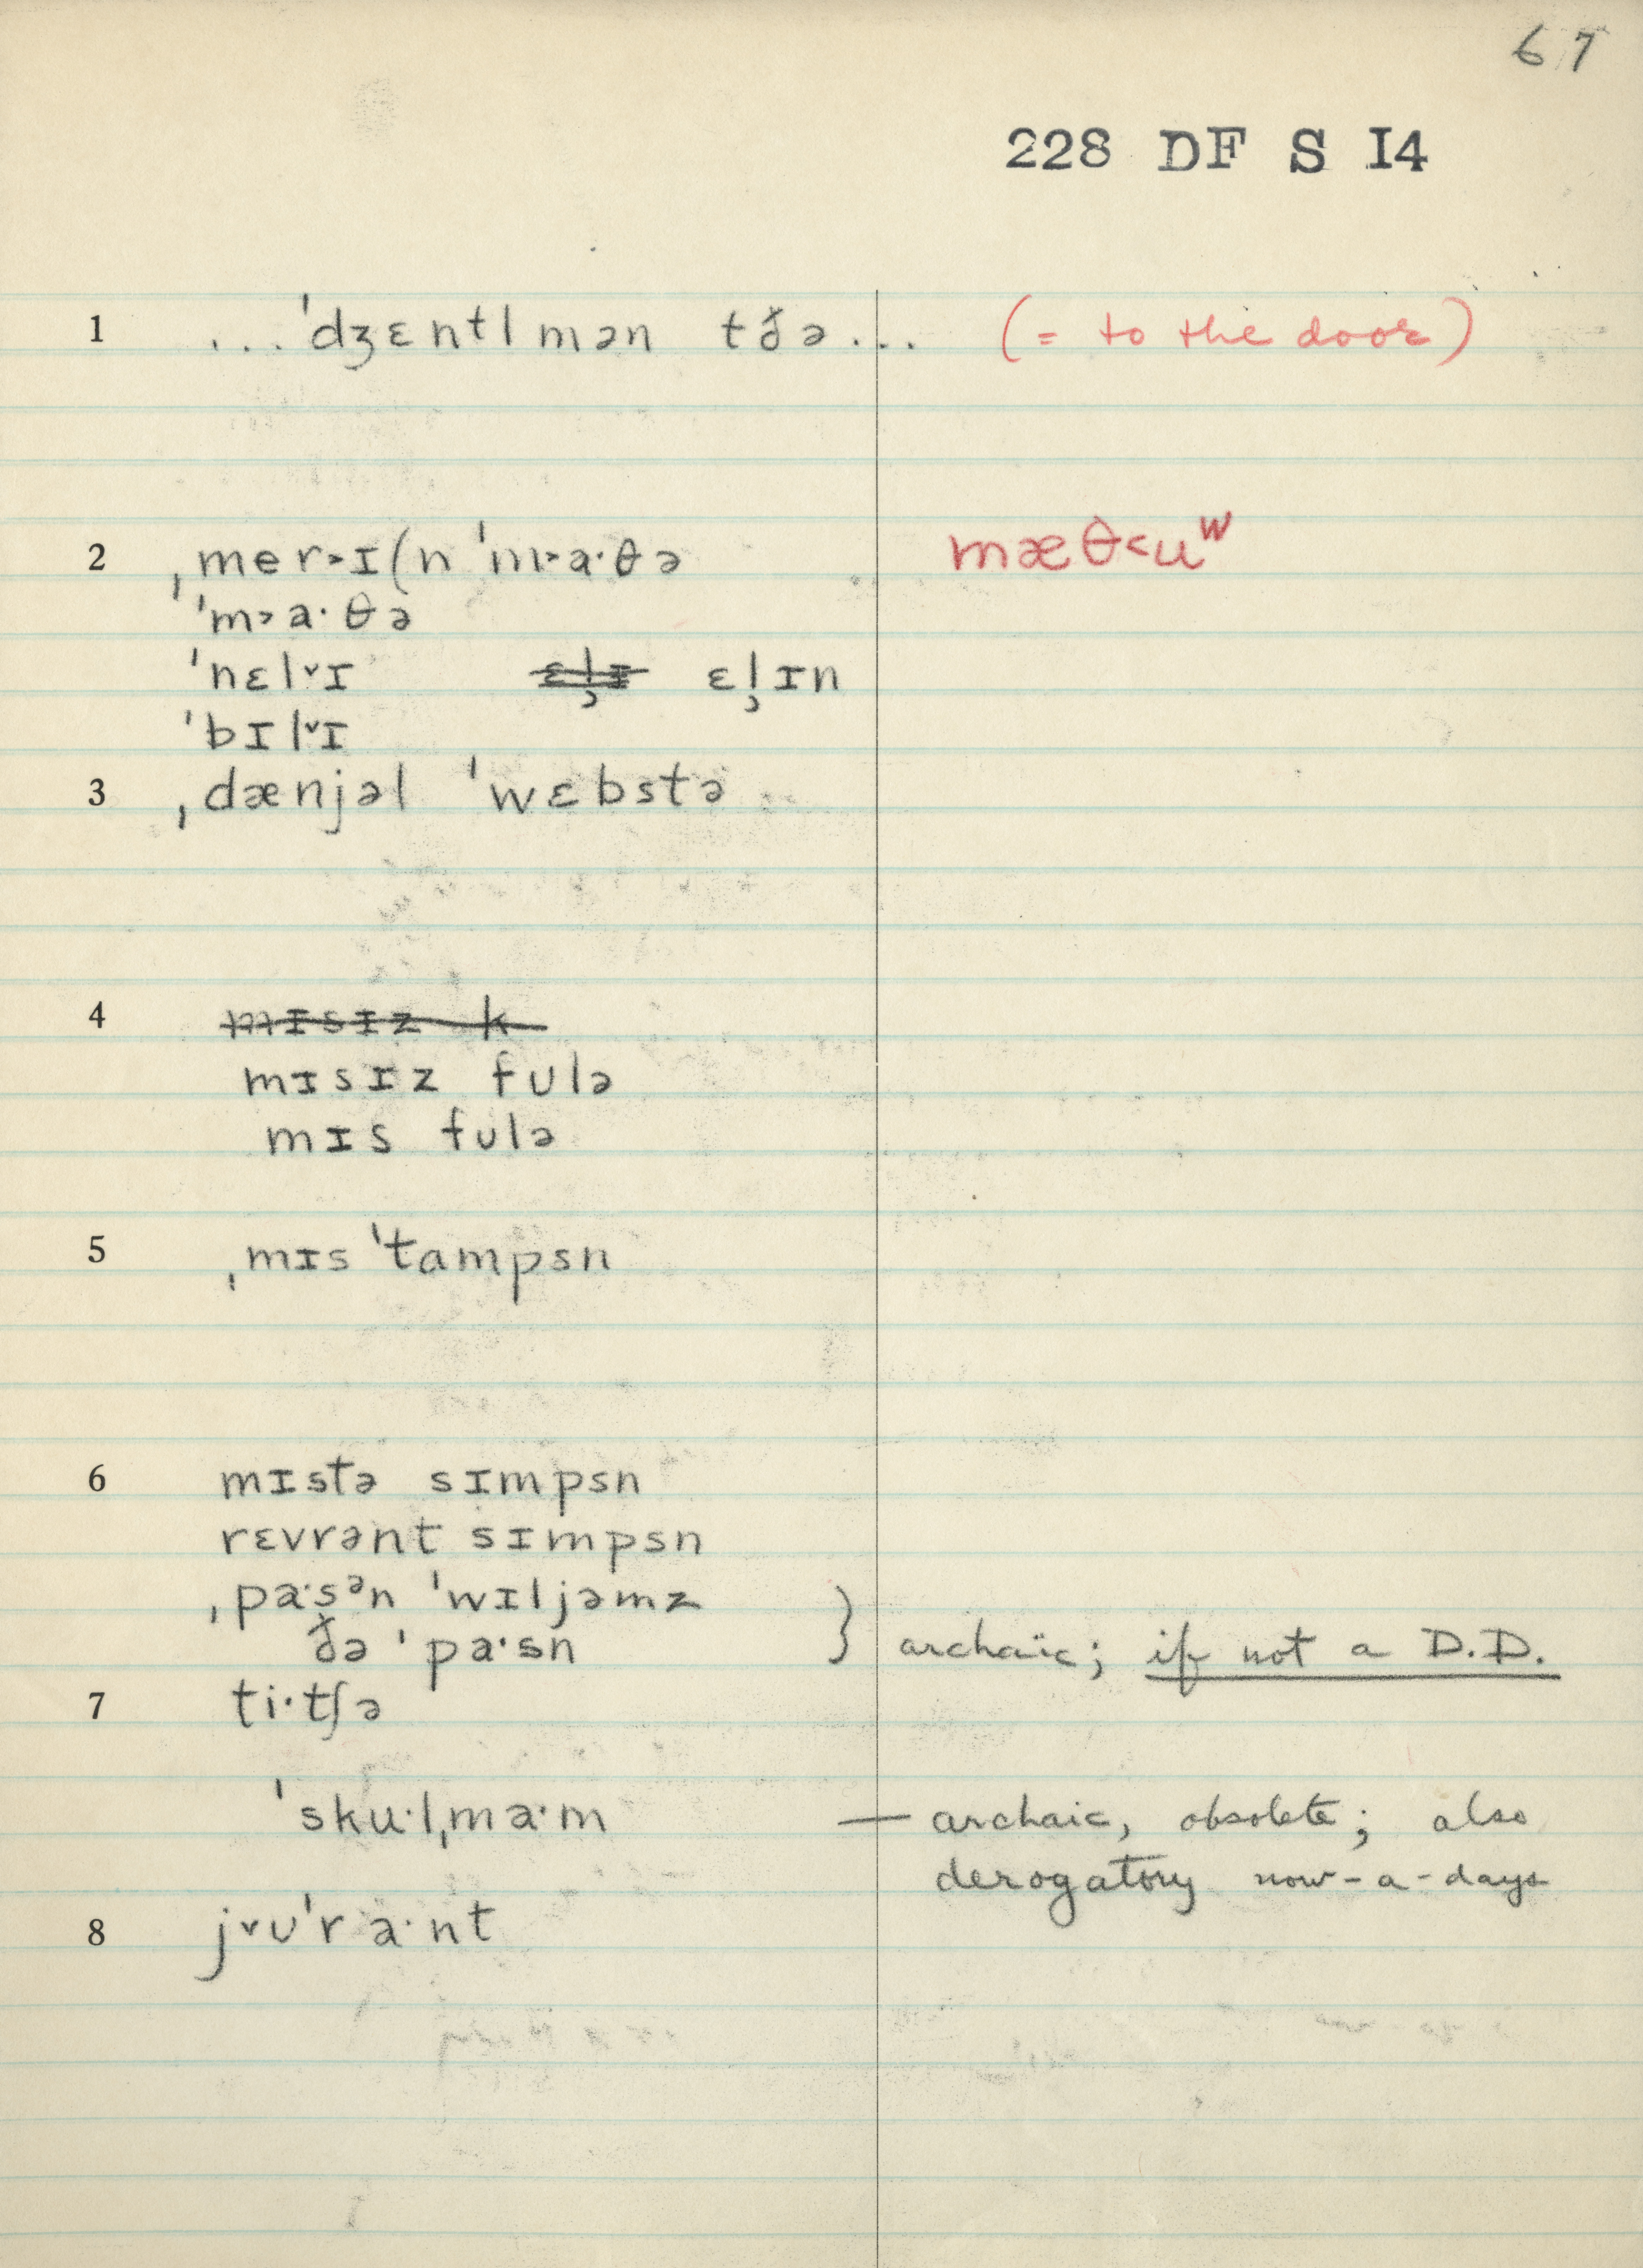 67
228 DF S I4
1 ...ˈdʒɛntlmən tðə... (= to the door)
2 ˌmer˃ɪ(n ˈm˃a·θə mæθ˂uʷ
ˈm˃a·θə
ˈnɛl˅ɪ ɛl̹ɪ ɛl̹ɪn
ˈbɪl˅ɪ
3 ˌdænjəl ˈwɛbstə
4 mɪsɪz k
mɪsɪz fʊlə
mɪs fʊlə
5 ˌmɪs ˈtampsn
6 mɪstə sɪmpsn
rɛvrənt sɪmpsn
ˌpa·sᵊn ˈwɪljəmz
ðə ˈpa·sn } archaïc; if not a D.D.
7 ti·tʃə
ˈsku·lˌma·m — archaic, obsolete; also
derogatory now-a-days
8 j˅ʊˈra·nt